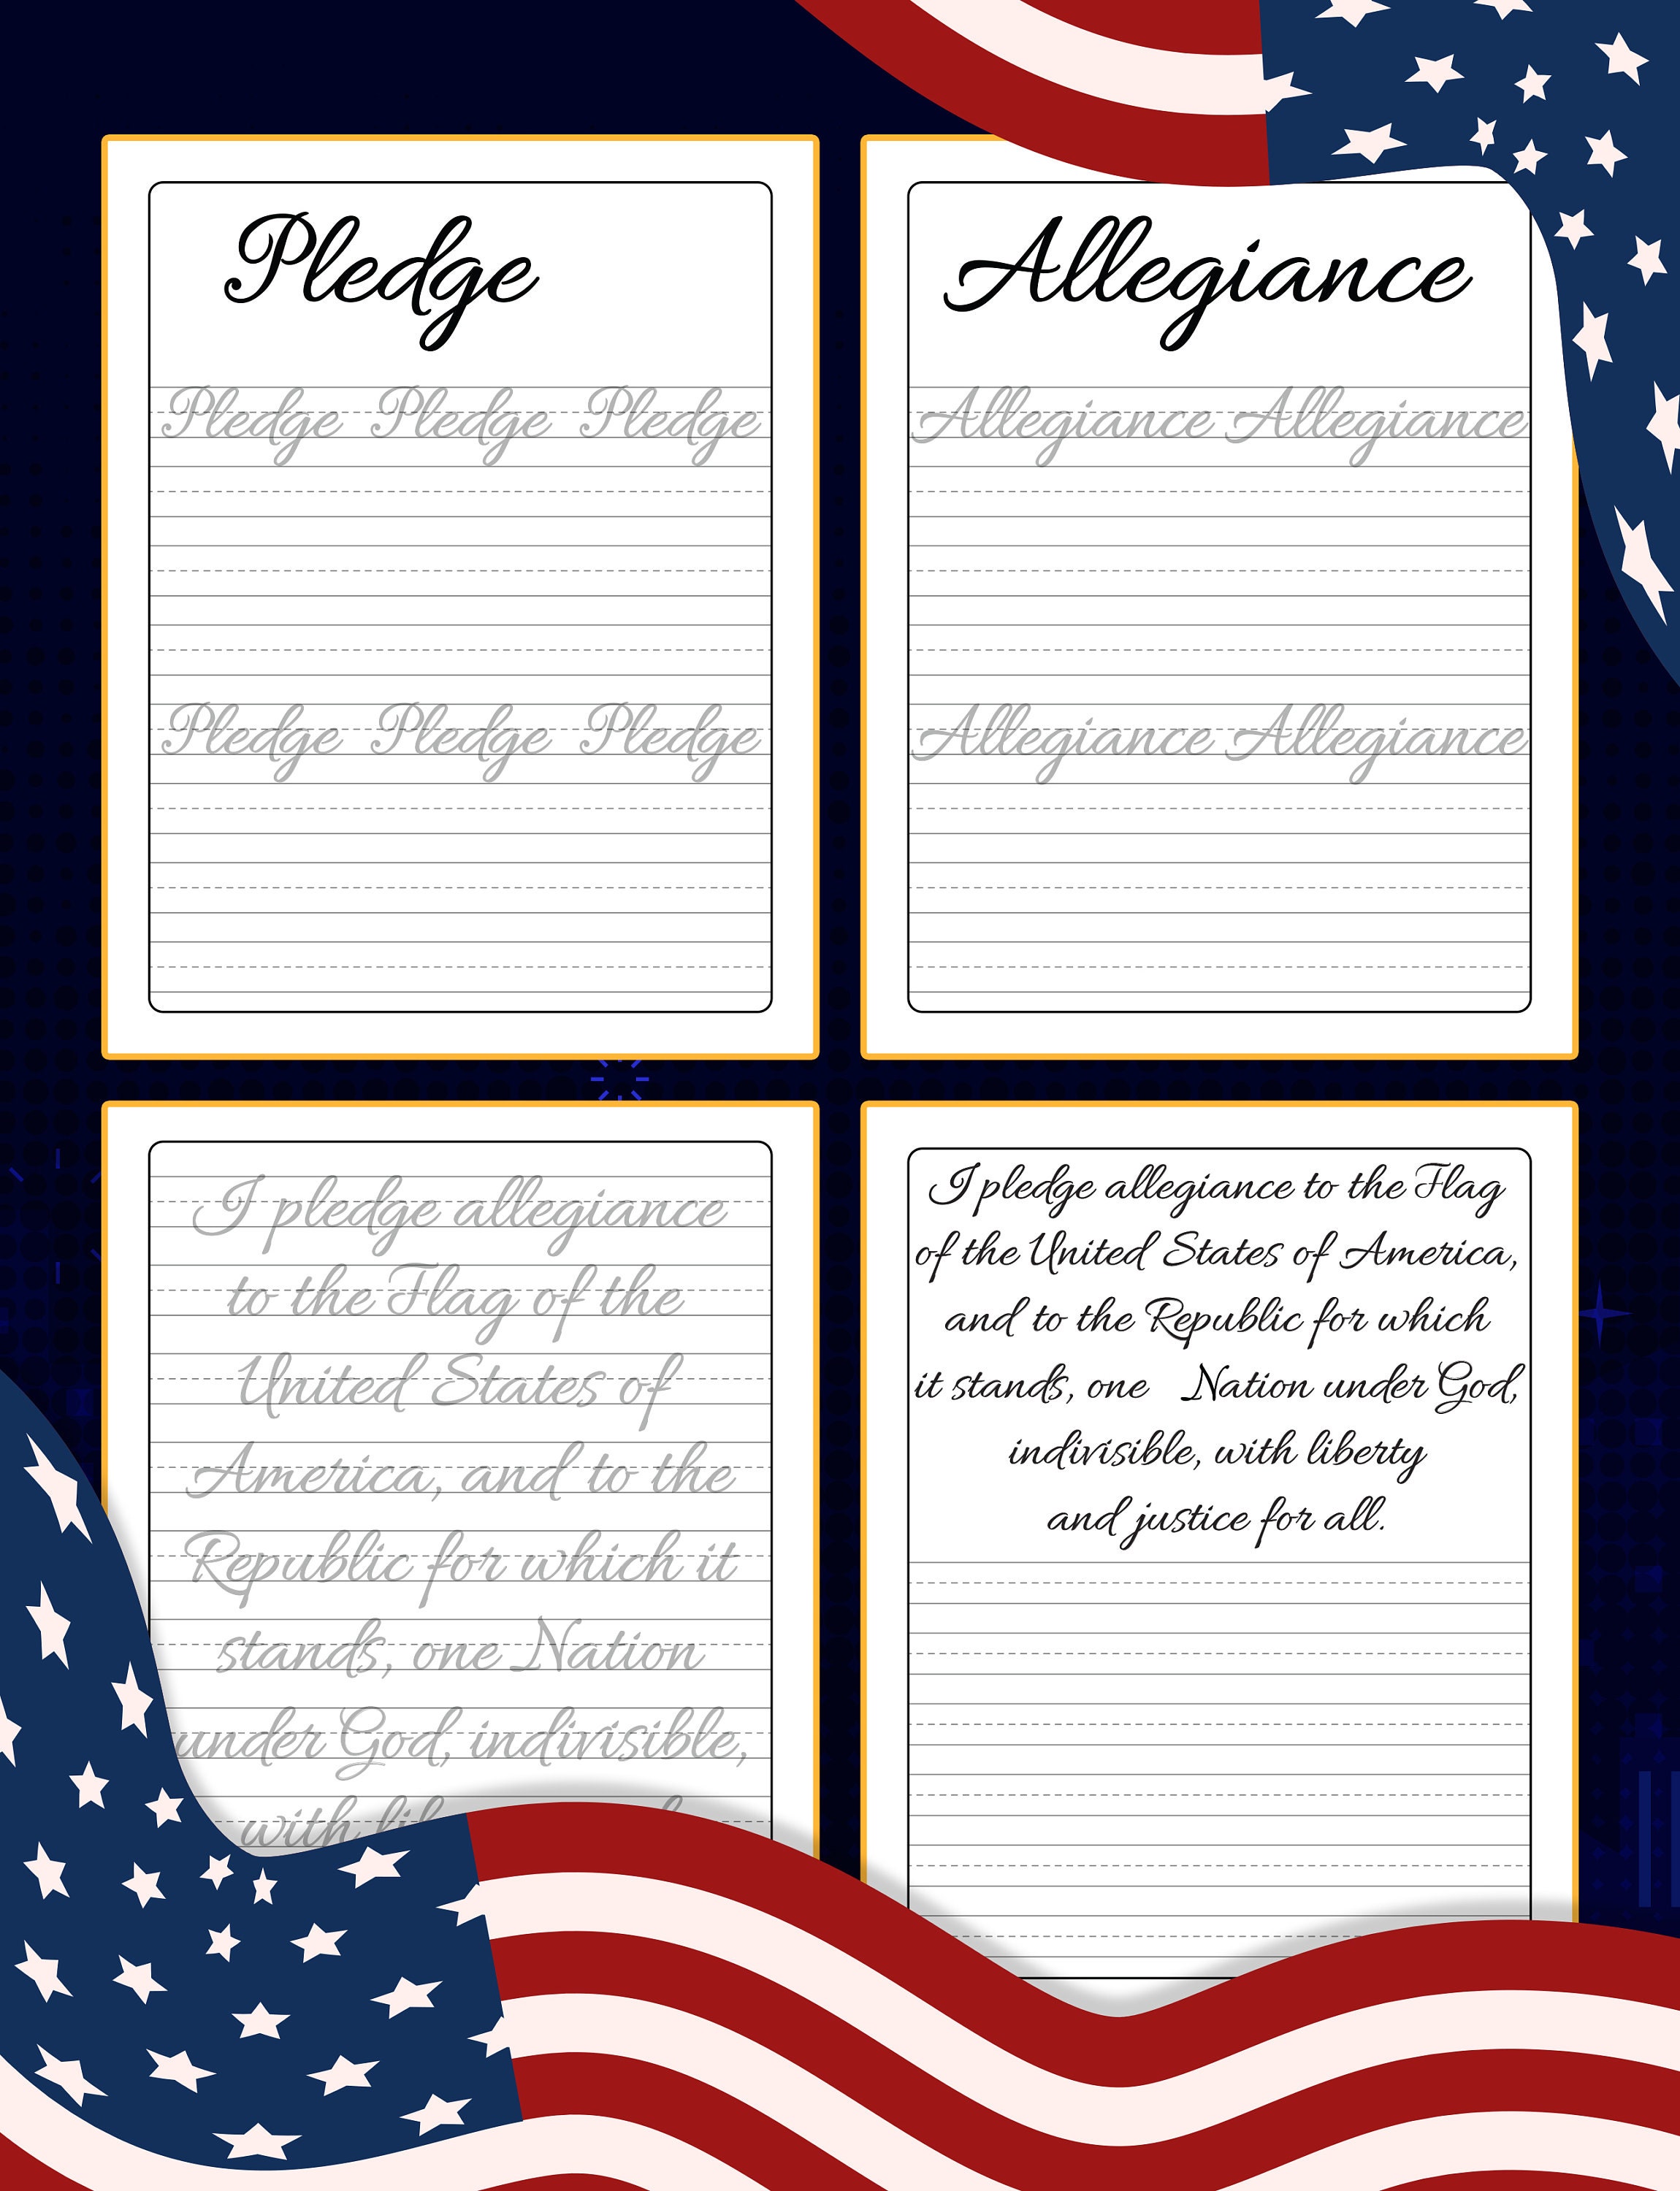 Pledge
Pledge Pledge Pledge
Pledge Pledge Pledge
Allegiance
Allegiance Allegiance
Allegiance Allegiance
I pledge allegiance
to the Flag of the
United States of
America, and to the
Republic for which it
stands, one Nation
under God, indivisible,
with
I pledge allegiance to the Flag
of the United States of America,
and to the Republic for which
it stands, one Nation under God,
indivisible, with liberty
and justice for all.